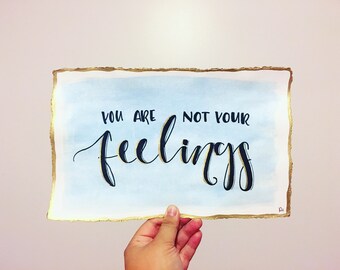 YOU ARE NOT YOUR
feelings